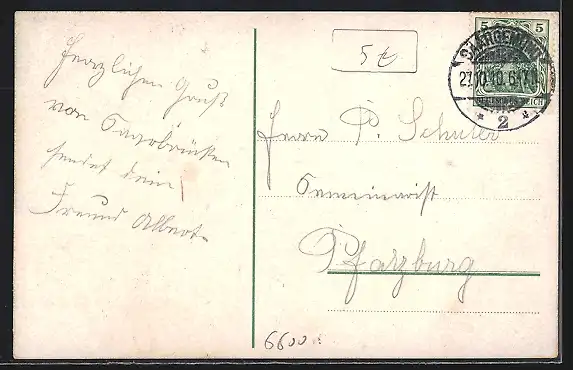 Herzlichen Gruß
von Saarbrücken
sendet dein
Freund Albert.
5 €
5 5
27.10.10.6-7N.
* 2 *
REICH
Herrn P. Schuler
Seminarist
Pfalzburg
6600